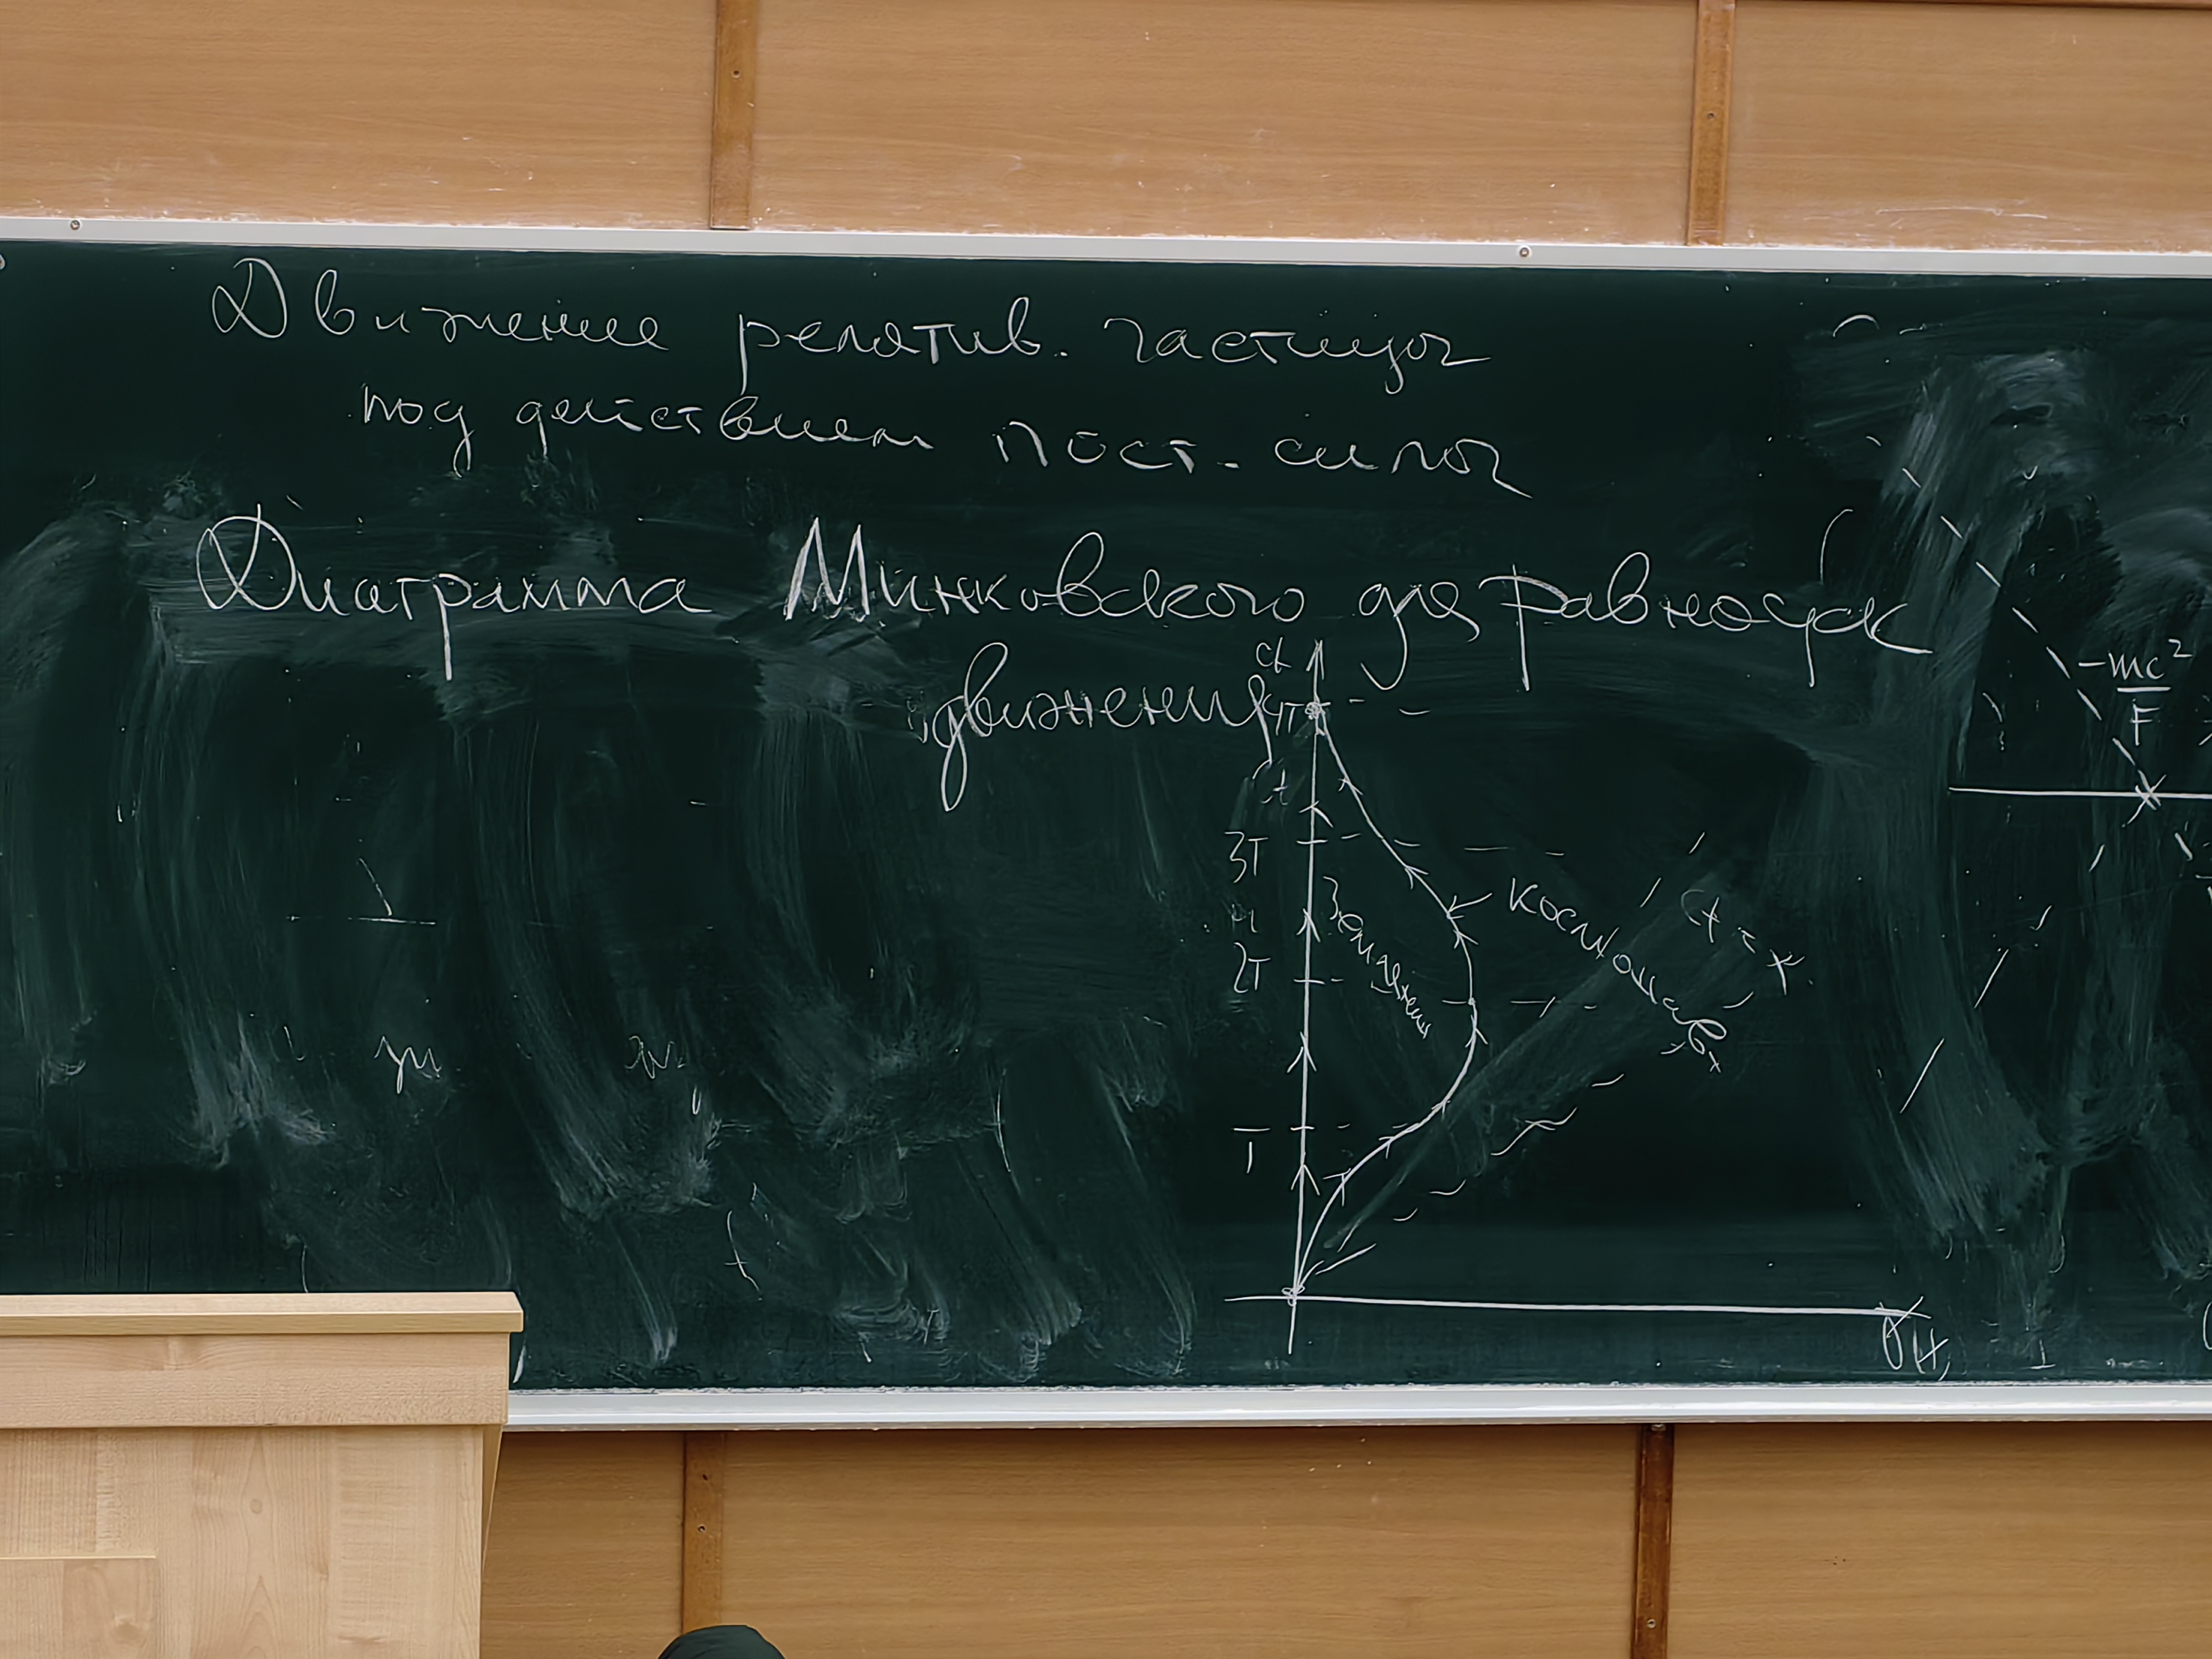 Движение релятив. частицы
под действием пост. силы
Диаграмма Минковского для равноуск
движения
ct
4T
3T
2T
T
Земляне
Космонавт
ct = x
-mc²
F